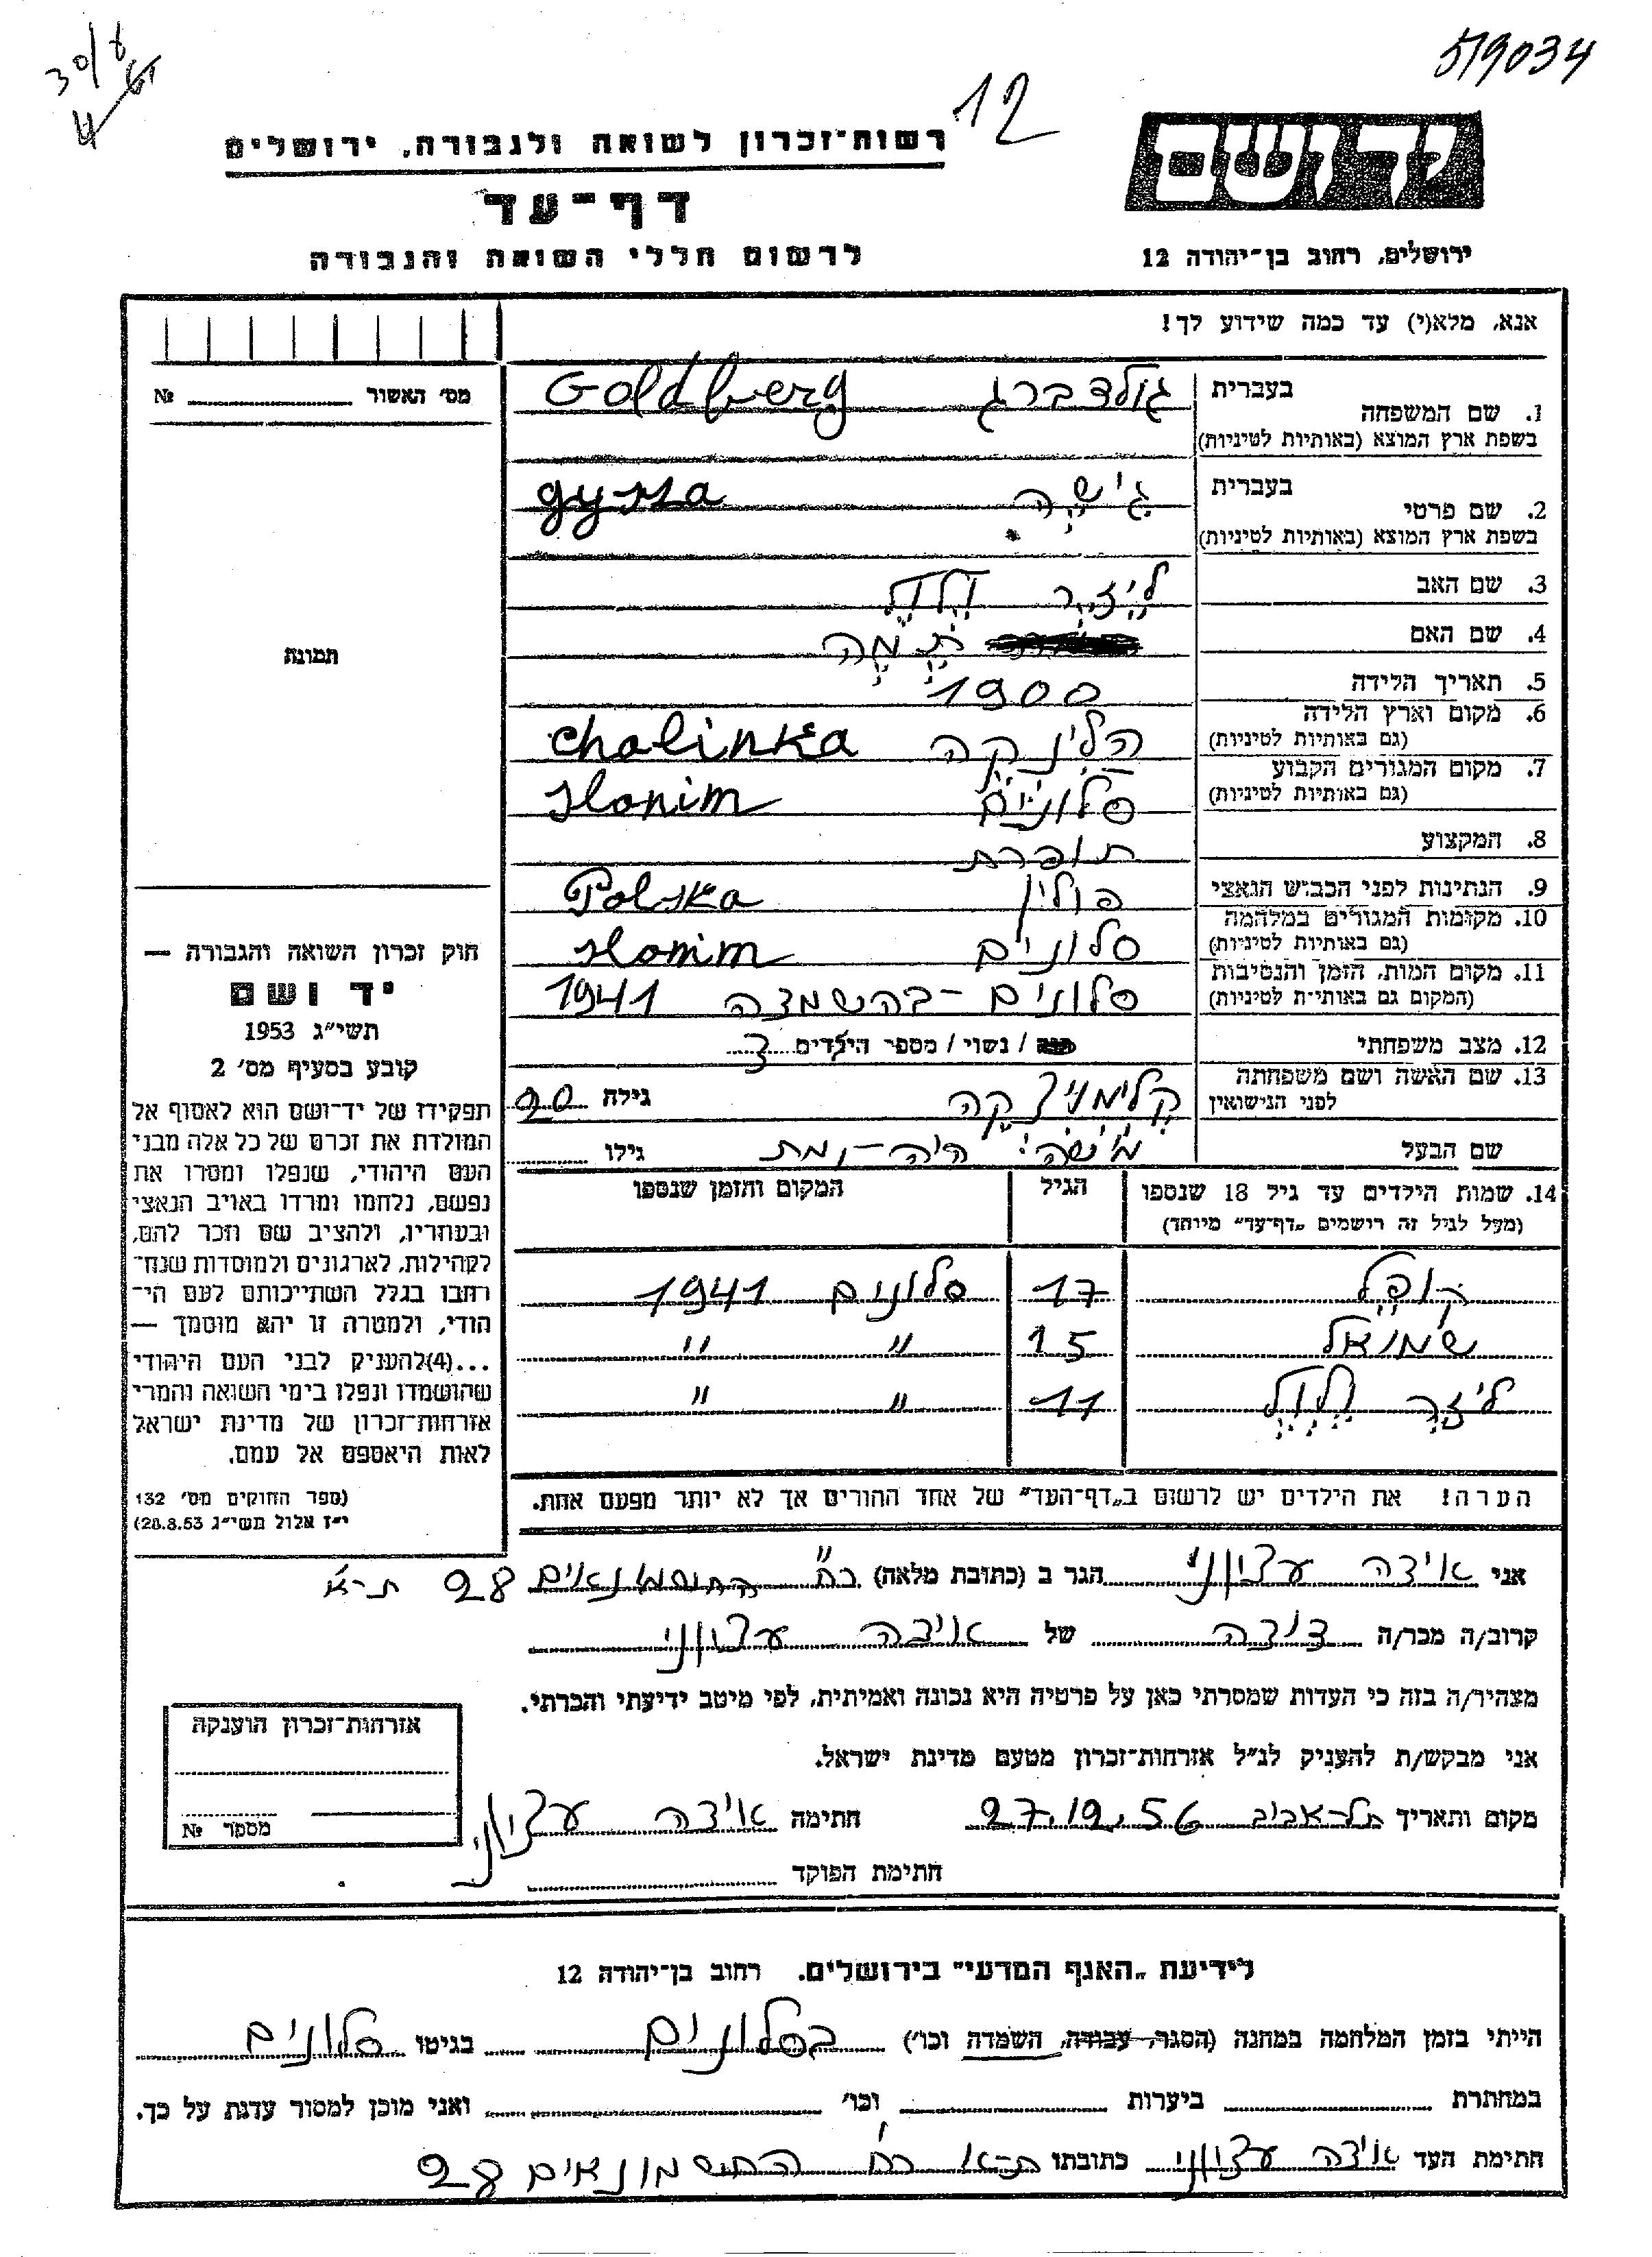 519034
30/8
12
יד ושם
רשות־זכרון לשואה ולגבורה, ירושלים
דף־עד
לרשום חללי השואה והגבורה
ירושלים, רחוב בן־יהודה 12
אנא, מלא(י) עד כמה שידוע לך!
מס׳ האשור № 
1. שם המשפחה בעברית גולדברג Goldberg
בשפת ארץ המוצא (באותיות לטיניות)
2. שם פרטי בעברית גישה gysza
בשפת ארץ המוצא (באותיות לטיניות)
3. שם האב ליזר וולול
4. שם האם תמה
תמונה
5. תאריך הלידה 1900
6. מקום וארץ הלידה הלינקה chalinka
(גם באותיות לטיניות)
7. מקום המגורים הקבוע סלונים Slonim
(גם באותיות לטיניות)
8. המקצוע תופרת
9. הנתינות לפני הכבוש הנאצי פולין Polska
10. מקומות המגורים במלחמה סלונים Slonim
(גם באותיות לטיניות)
11. מקום המות, הזמן והנסיבות סלונים - בהשמצה 1941
(המקום גם באותיות לטיניות)
12. מצב משפחתי / נשוי / מספר הילדים 3
13. שם האשה ושם משפחתה
לפני הנישואין קלימויצקה גילה 20
שם הבעל מישה: היה-ומת גילו
14. שמות הילדים עד גיל 18 שנספו הגיל המקום והזמן שנספו
(מעל לגיל זה רושמים „דף־עד״ מיוחד)
קופל 17 סלונים 1941
שמואל 15 " "
ליזר וולול 11 " "
הערה! את הילדים יש לרשום ב„דף־העד״ של אחד ההורים אך לא יותר מפעם אחת.
חוק זכרון השואה והגבורה —
יד ושם
תשי״ג 1953
קובע בסעיף מס׳ 2
תפקידו של יד־ושם הוא לאסוף אל
המולדת את זכרם של כל אלה מבני
העם היהודי, שנפלו ומסרו את
נפשם, נלחמו ומרדו באויב הנאצי
ובעוזריו, ולהציב שם וזכר להם,
לקהילות, לארגונים ולמוסדות שנח־
רבו בגלל השתייכותם לעם הי־
הודי, ולמטרה זו יהא מוסמך —
...(4)להעניק לבני העם היהודי
שהושמדו ונפלו בימי השואה והמרי
אזרחות־זכרון של מדינת ישראל
לאות היאספם אל עמם.
(ספר החוקים מס׳ 132
י״ז אלול תשי״ג 28.8.53)
אני איצה עצווני הגר ב (כתובת מלאה) רח׳ החשמונאים 28 ת-א
קרוב/ה מכר/ה דודה של איצה עצווני
מצהיר/ה בזה כי העדות שמסרתי כאן על פרטיה היא נכונה ואמיתית, לפי מיטב ידיעתי והכרתי.
אני מבקש/ת להעניק לנ״ל אזרחות־זכרון מטעם מדינת ישראל.
מקום ותאריך תל-אביב 27.12.56 חתימה איצה עצווני
חתימת הפוקד
אזרחות־זכרון הוענקה
מספר №
לידיעת „האגף המדעי״ בירושלים, רחוב בן־יהודה 12
הייתי בזמן המלחמה במחנה (הסגר, עבודה, השמדה וכו׳) בסלונים בגיטו סלונים
במחתרת ביערות וכו׳ ואני מוכן למסור עדות על כך.
חתימת העד איצה עצווני כתובתו ת-א רח׳ החשמונאים 28